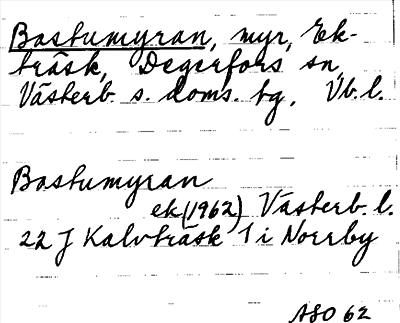 Bastumyran, myr, Ek-
träsk, Degerfors sn,
Västerb. s. doms. tg, Vb. l.
Bastumyran
ek (1962) Västerb. l.
22 J Kalvträsk 1 i Norrby
ASO 62